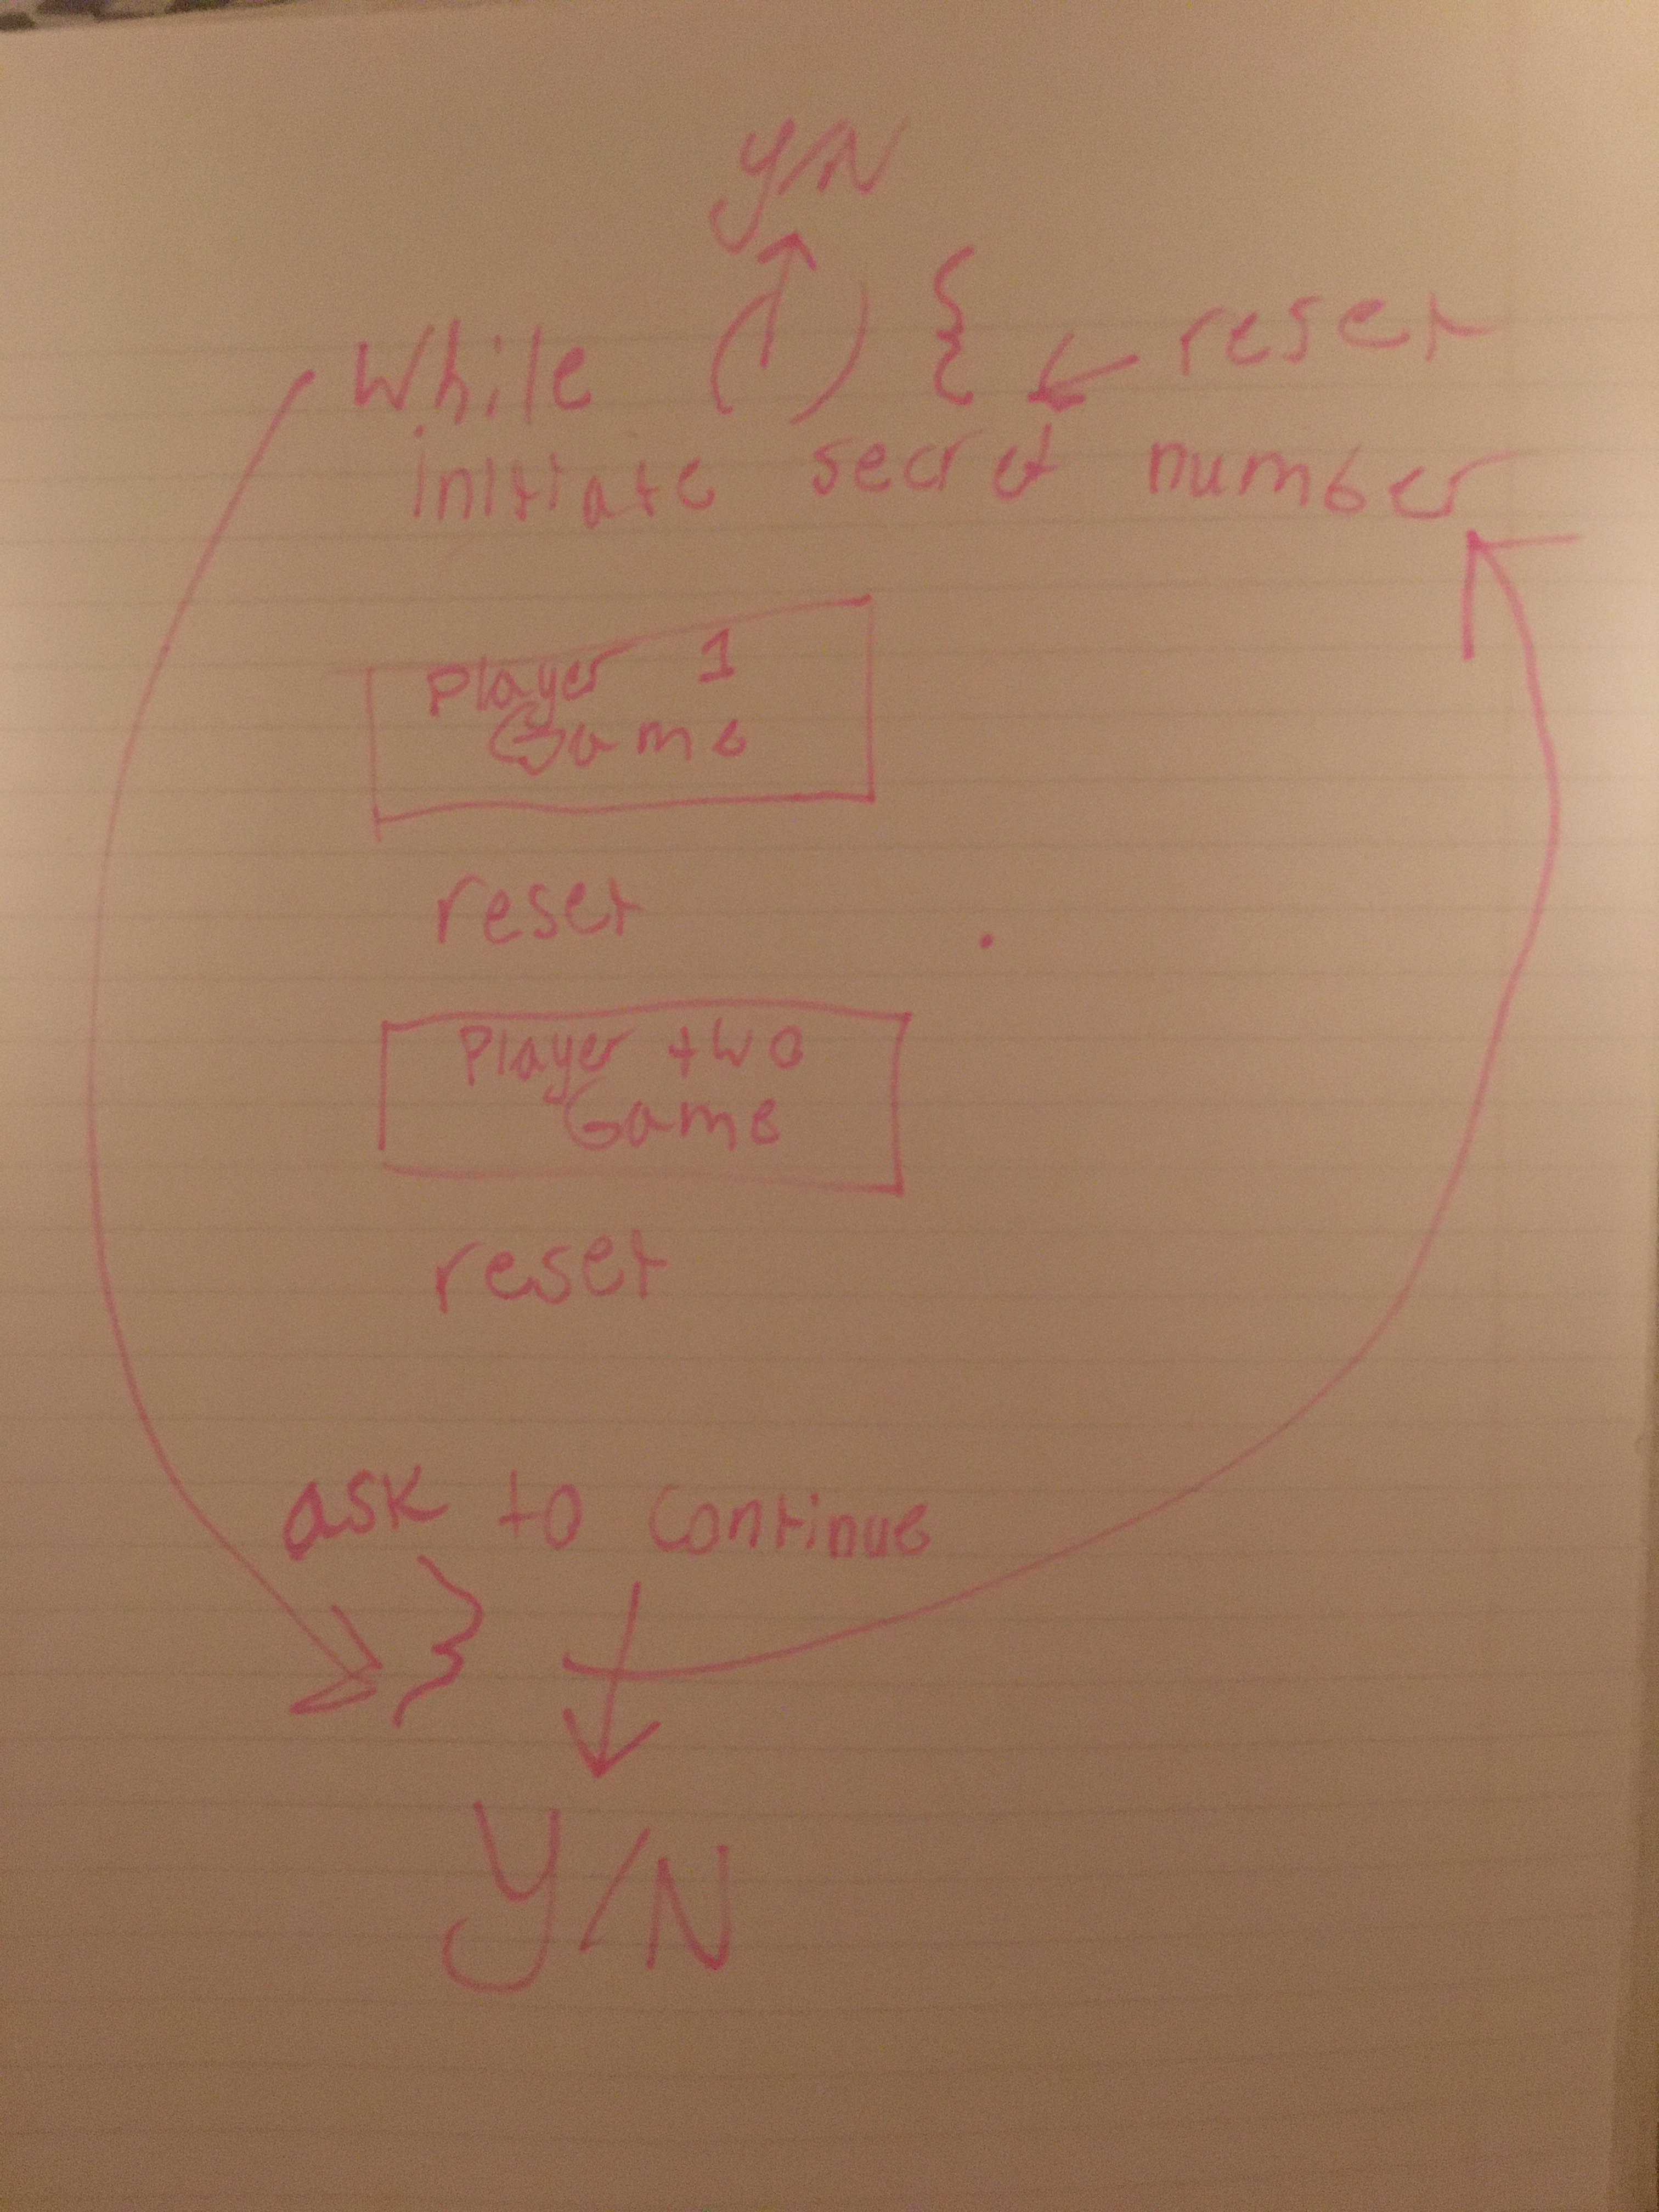 Y/N
While ( ) { reset
initiate secret number
Player 1
Game
reset
Player two
Game
reset
ask to continue
}
Y/N